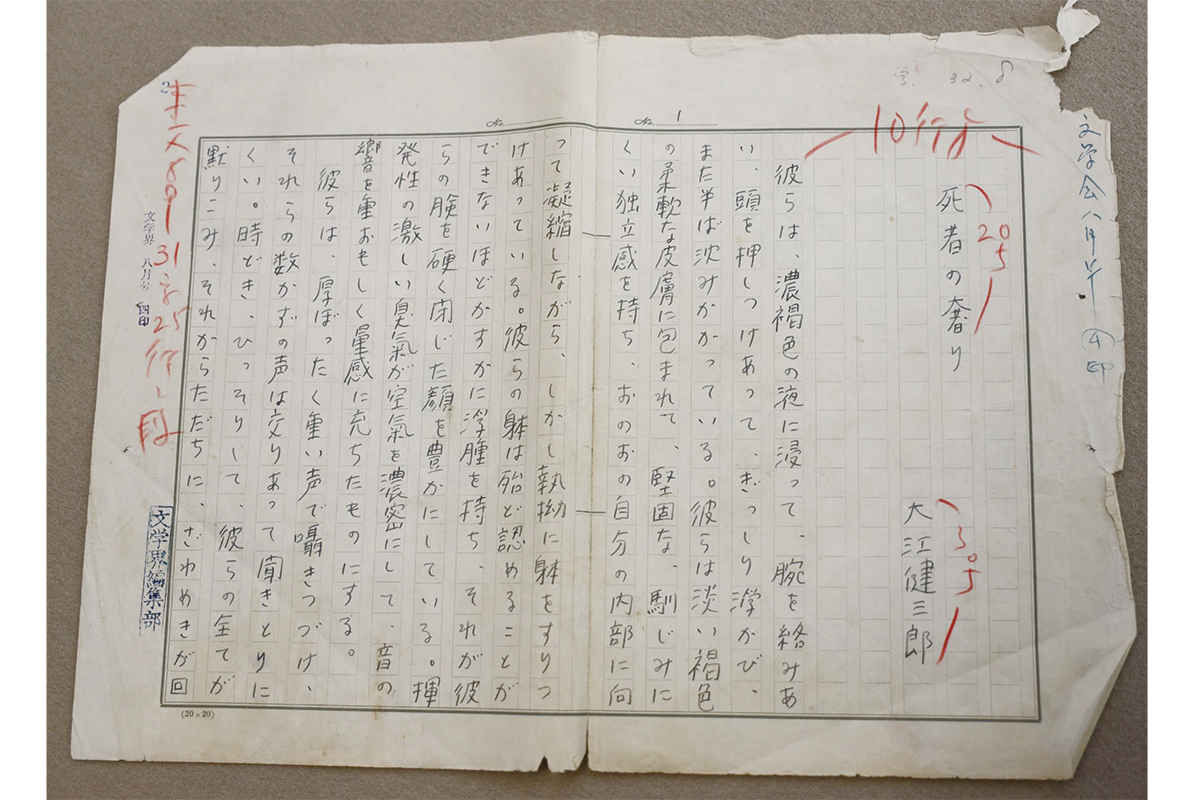 32. 8
10行分
死者の奢り
大江健三郎
No. 1
彼らは、濃褐色の液に浸って、腕を絡みあ
い、頭を押しつけあって、ぎっしり浮かび、
また半ば沈みかかっている。彼らは淡い褐色
の柔軟な皮膚に包まれて、堅固な、馴じみに
くい独立感を持ち、おのおの自分の内部に向
No.
って凝縮しながら、しかし執拗に躰をすりつ
けあっている。彼らの躰は殆ど認めることが
できないほどかすかに浮腫を持ち、それが彼
らの瞼を硬く閉じた顔を豊かにしている。揮
発性の激しい臭氣が空氣を濃密にして、音の
響を重おもしく量感に充ちたものにする。
彼らは、厚ぼったく重い声で囁きつづけ、
それらの数かずの声は交りあって聞きとりに
くい。時どき、ひっそりして、彼らの全てが
黙りこみ、それからただちに、ざわめきが回
(20×20)
文学界 八月号
文学界編集部